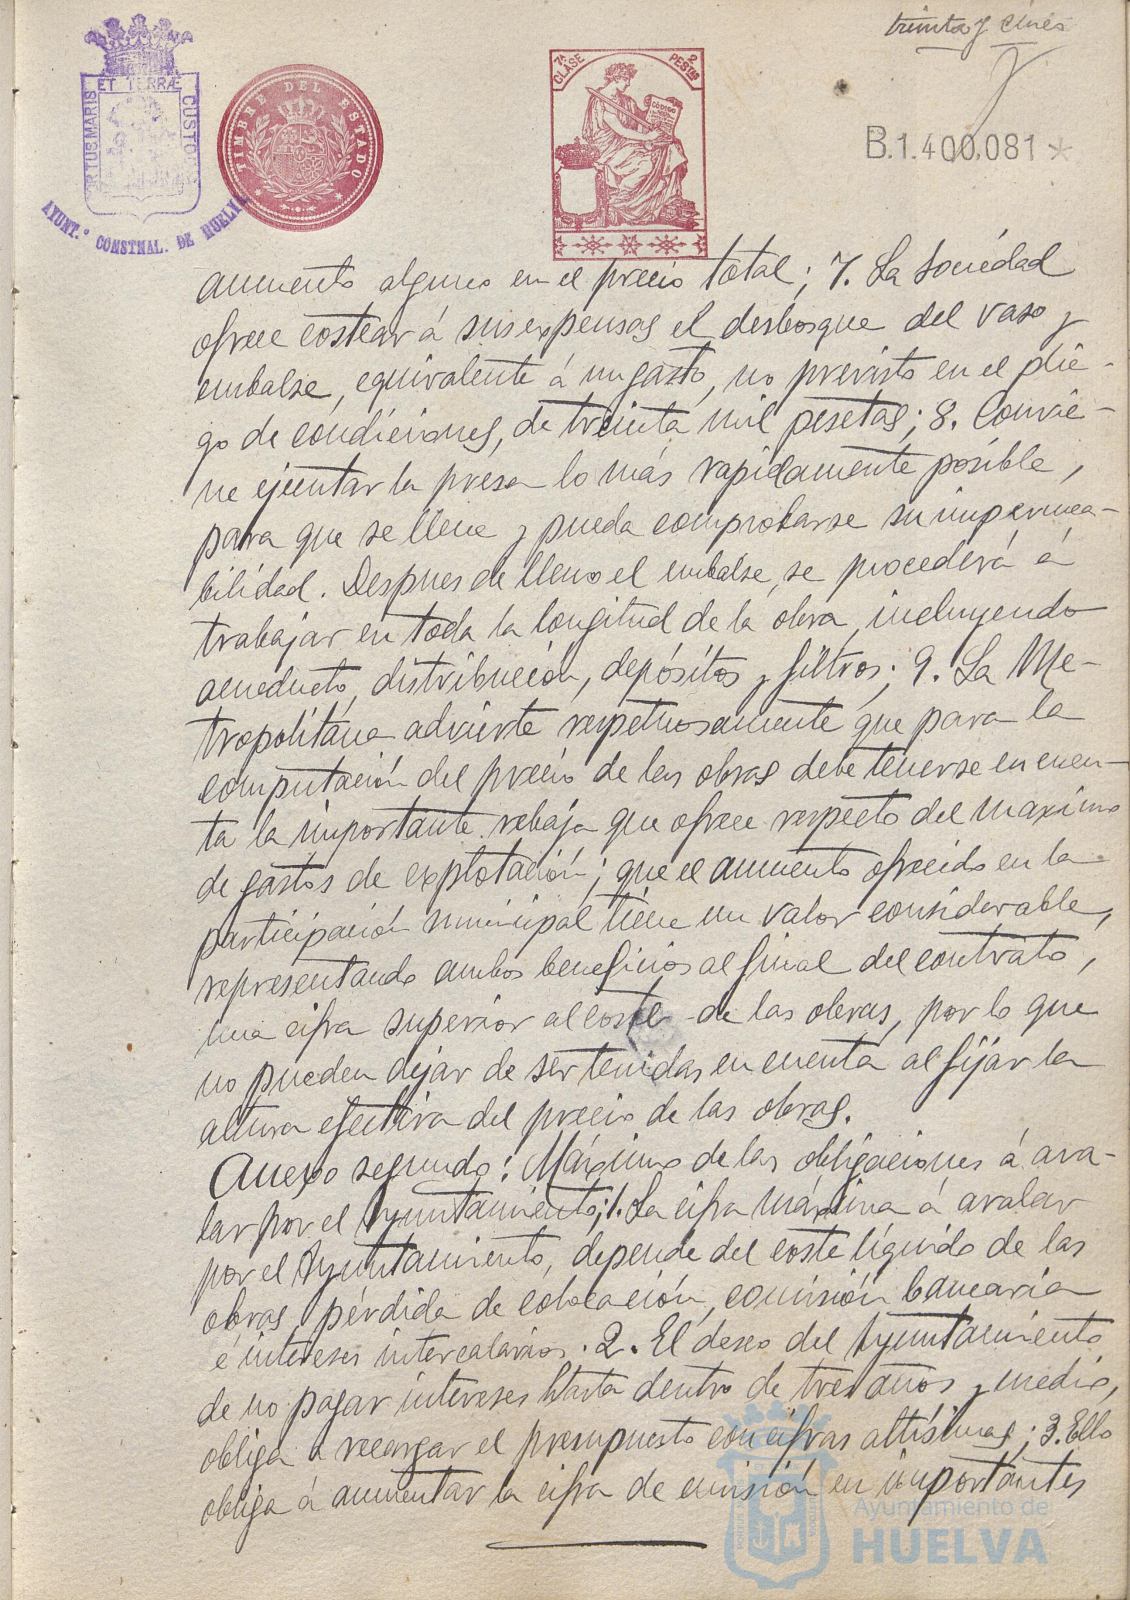 treinta y cinco
ET TERRÆ
PORTUS MARIS
CUSTODIA
AYUNT.º CONSTNAL. DE HUELVA
TIMBRE DEL ESTADO
7ª CLASE
2 PESTAS
CÓDIGO
B.1.400,081 *
aumento alguno en el precio total; 7. La Sociedad
ofrece costear á sus expensas el desbosque del vaso y
embalse, equivalente á un gasto, no previsto en el plie-
go de condiciones, de treinta mil pesetas; 8. Convie-
ne ejecutar la presa lo más rapidamente posible,
para que se llene y pueda comprobarse su impermea-
bilidad. Despues de lleno el embalse, se procederá á
trabajar en toda la longitud de la obra, incluyendo
acueducto, distribución, depósitos y filtros; 9. La Me-
tropolitana advierte respetuosamente que para la
computación del precio de las obras debe tenerse en cuen-
ta la importante rebaja que ofrece respecto del maximo
de gastos de explotación; que el aumento ofrecido en la
participación municipal tiene un valor considerable,
representando ambos beneficios al final del contrato,
una cifra superior al coste de las obras, por lo que
no pueden dejar de ser tenidas en cuenta al fijar la
altura efectiva del precio de las obras.
Anexo segundo: Máximo de las obligaciones á ava-
lar por el Ayuntamiento; 1. La cifra máxima á avalar
por el Ayuntamiento, depende del coste líquido de las
obras, pérdida de colocación, comisión bancaria
é intereses intercalarios. 2. El deseo del Ayuntamiento
de no pagar intereses hasta dentro de tres años y medio,
obliga a recargar el presupuesto con cifras altísimas; 3. Ello
obliga á aumentar la cifra de emisión en importantes
Ayuntamiento de
HUELVA